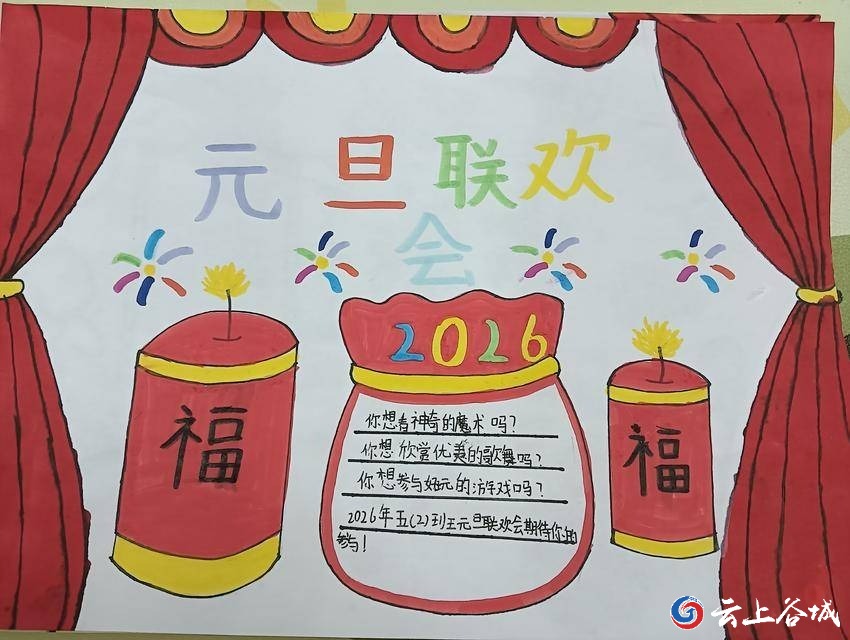 元旦联欢
会
2026
福
福
你想看神奇的魔术吗？
你想欣赏优美的歌舞吗？
你想参与好玩的游戏吗？
2026年五(2)班元旦联欢会期待你的
参与！
云上谷城